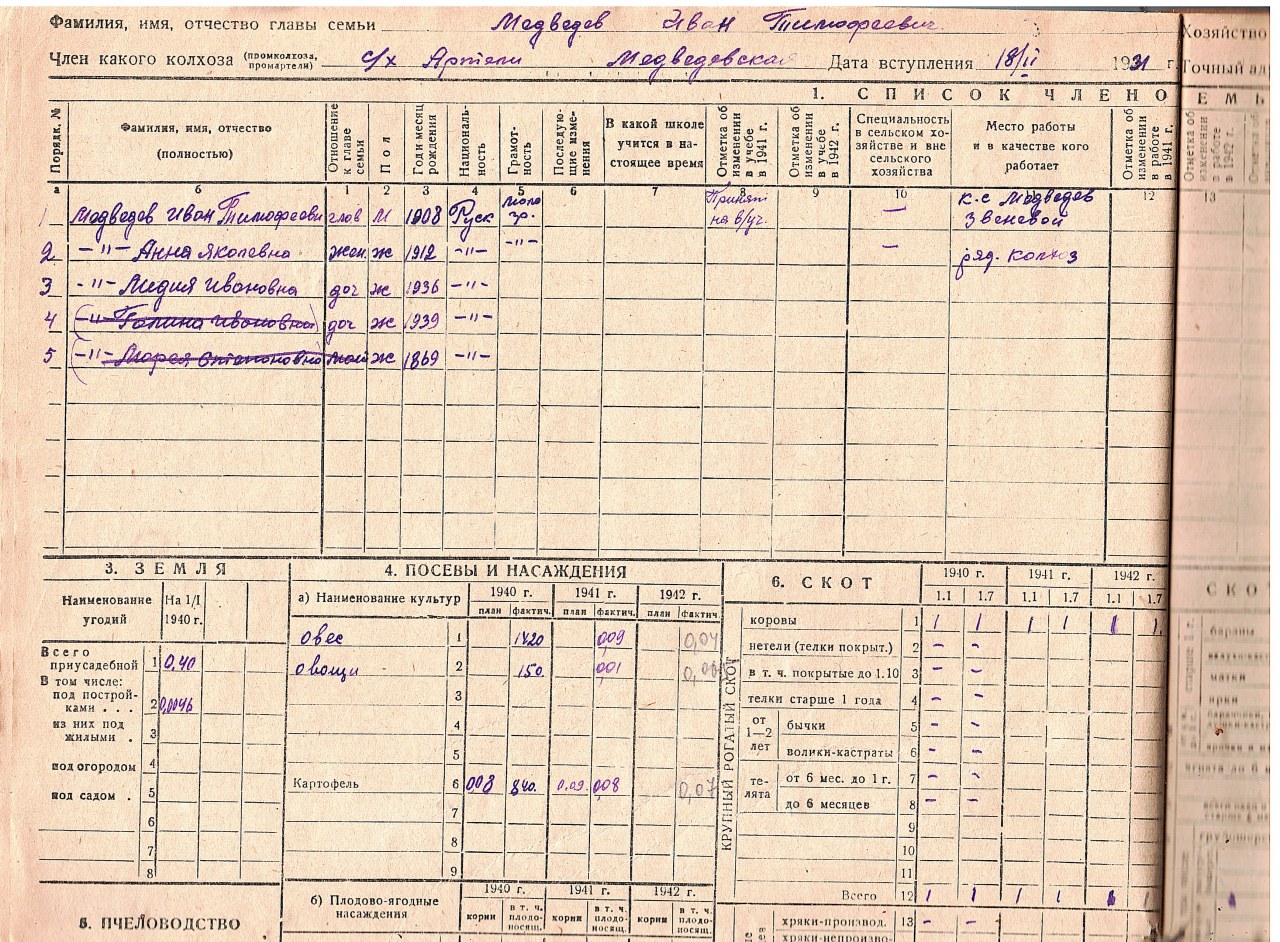 Фамилия, имя, отчество главы семьи Медведев Иван Тимофеевич
Член какого колхоза (промколхоза, промартели) с/х Артели Медведевская Дата вступления 18/II 1931 г.
Хозяйство
Точный
1. СПИСОК ЧЛЕНО
ЕМЬ
Порядк. № Фамилия, имя, отчество (полностью) Отношение к главе семьи Пол Год и месяц рождения Националь-ность Грамот-ность Последую-щие изме-нения В какой школе учится в на-стоящее время Отметка об изменении в учебе в 1941 г. Отметка об изменении в учебе в 1942 г. Специальность в сельском хо-зяйстве и вне сельского хозяйства Место работы и в качестве кого работает Отметка об изменении в работе в 1941 г. Отметка об изменении в работе в 1942 г.
а б 1 2 3 4 5 6 7 8 9 10 12 13
1 Медведев Иван Тимофееви глав М 1908 Руск мало гр. Принят на в/уч. — к-с Медведев Звеневой
2 —"— Анна Яковлевна жен ж 1912 —"— —"— — ряд. колхоз
3 -"- Лидия Ивановна доч ж 1936 —"—
4 —"— Галина Ивановна доч ж 1939 —"—
5 —"— ж 1869 —"—
3. ЗЕМЛЯ
Наименование угодий На 1/I 1940 г.
Всего приусадебной 1 0,40
В том числе:
под построй-ками . . . 2 0,0046
из них под жилыми . 3
под огородом 4
под садом . 5
6
7
8
5. ПЧЕЛОВОДСТВО
4. ПОСЕВЫ И НАСАЖДЕНИЯ
а) Наименование культур 1940 г. 1941 г. 1942 г.
план фактич. план фактич. план фактич.
овес 1 1420 0,09 0,04
овощи 2 150. 001
3
4
5
Картофель 6 008 840. 0.09. 008 0,07
7
8
9
б) Плодово-ягодные насаждения 1940 г. 1941 г. 1942 г.
корни в т. ч. плодо-носящ. корни в т. ч. плодо-носящ. корни в т. ч. плодо-носящ.
6. СКОТ 1940 г. 1941 г. 1942 г.
1.1 1.7 1.1 1.7 1.1 1.7
КРУПНЫЙ РОГАТЫЙ СКОТ
коровы 1 1 1 1 1 1 1.
нетели (телки покрыт.) 2 – –
в т. ч. покрытые до 1.10 3 – –
телки старше 1 года 4 – –
от 1—2 лет бычки 5 – –
волики-кастраты 6 – –
те-лята от 6 мес. до 1 г. 7 – –
до 6 месяцев 8 – –
9
10
11
Всего 12 1 1 1 1 1 1
хряки-производ. 13 – –
хряки-непроизво-
СКО
бараны
матки
ярки